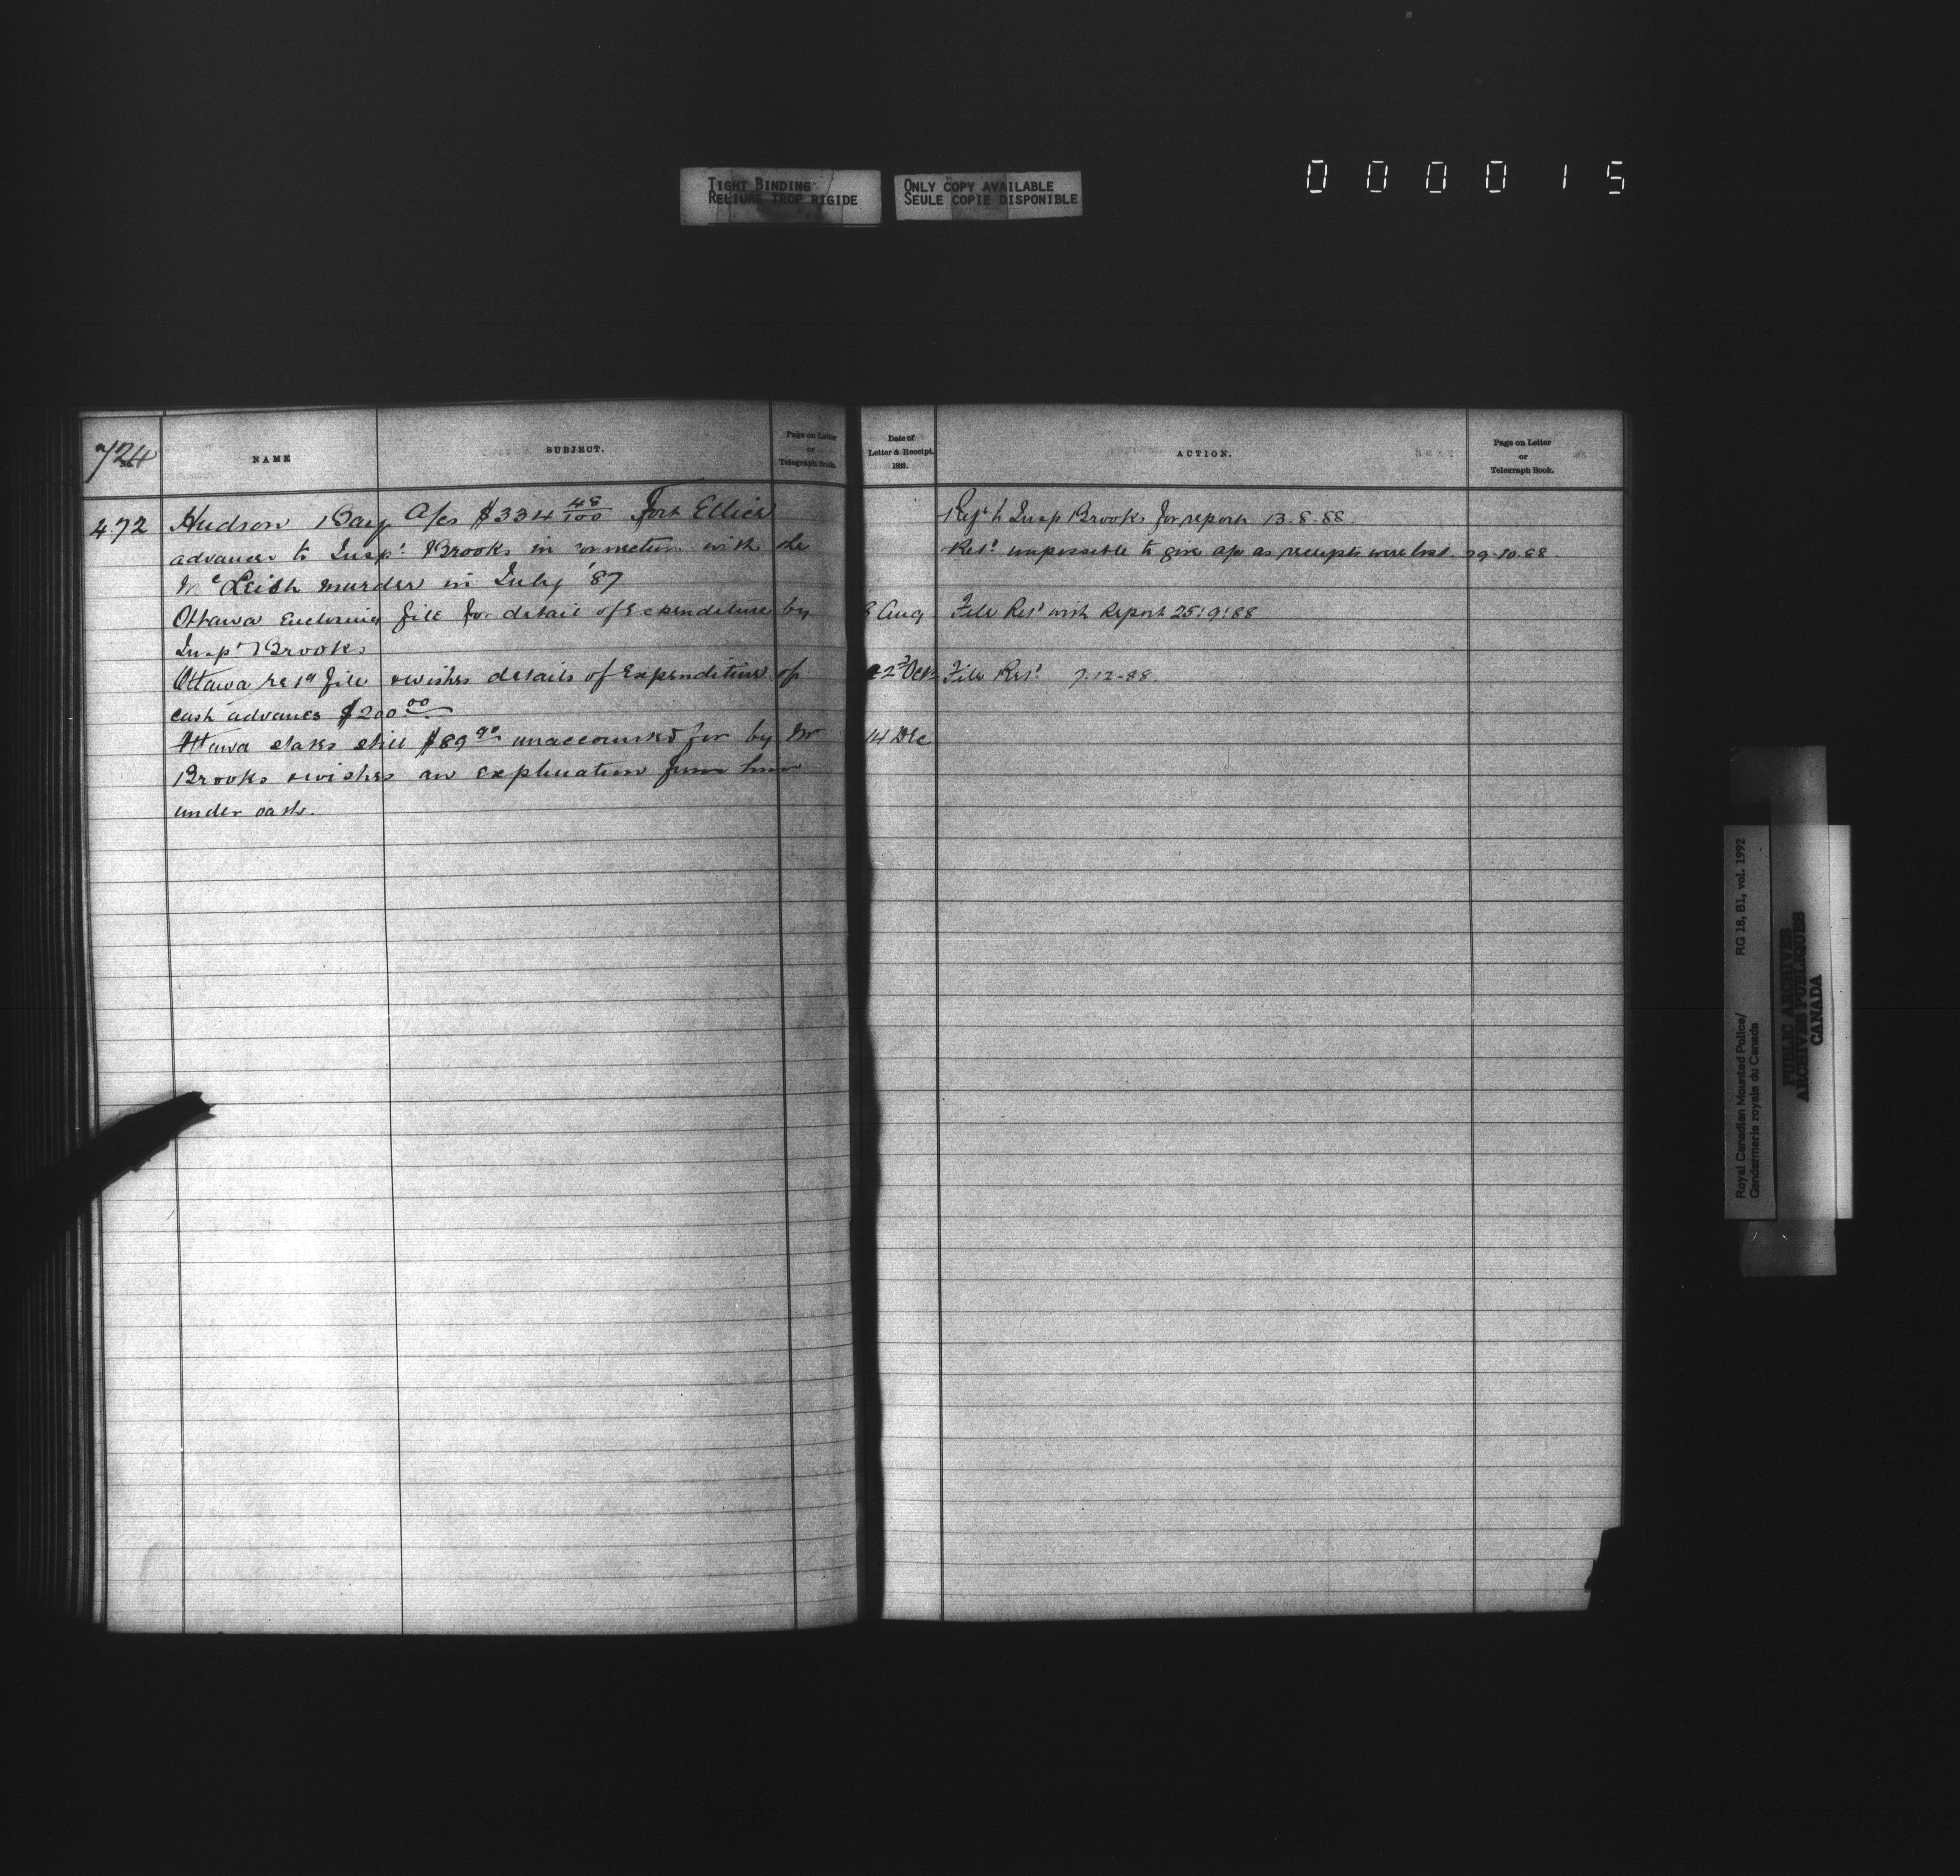 TIGHT BINDING
RELIURE TROP RIGIDE
ONLY COPY AVAILABLE
SEULE COPIE DISPONIBLE
000015
724
No.
NAME
SUBJECT.
Page on Letter
or
Telegraph Book.
472 Hudson Bay a/cs $334 48/100 Fort Ellice
advances to Inspr. Brooks in connection with the
McLeish murder in July '87
Ottawa Enclosing file for detail of Expenditure by
Inspr Brooks
Ottawa retd file & wishes details of Expenditure of
cash advances $200.00
Ottawa states still $89.90 unaccounted for by Mr
Brooks & wishes an explination from him
under oath.
Date of
Letter & Receipt.
1888.
ACTION.
Page on Letter
or
Telegraph Book.
Refd to Insp Brooks for report 13-8-88.
Retd. impossible to give a/c as receipts were lost. 29-10-88.
8 Aug File Retd with Report 25:9:88
22 Oct File Retd 7-12-88.
14 Dec
Royal Canadian Mounted Police/
Gendarmerie royale du Canada
RG 18, B1, vol. 1992
PUBLIC ARCHIVES
ARCHIVES PUBLIQUES
CANADA